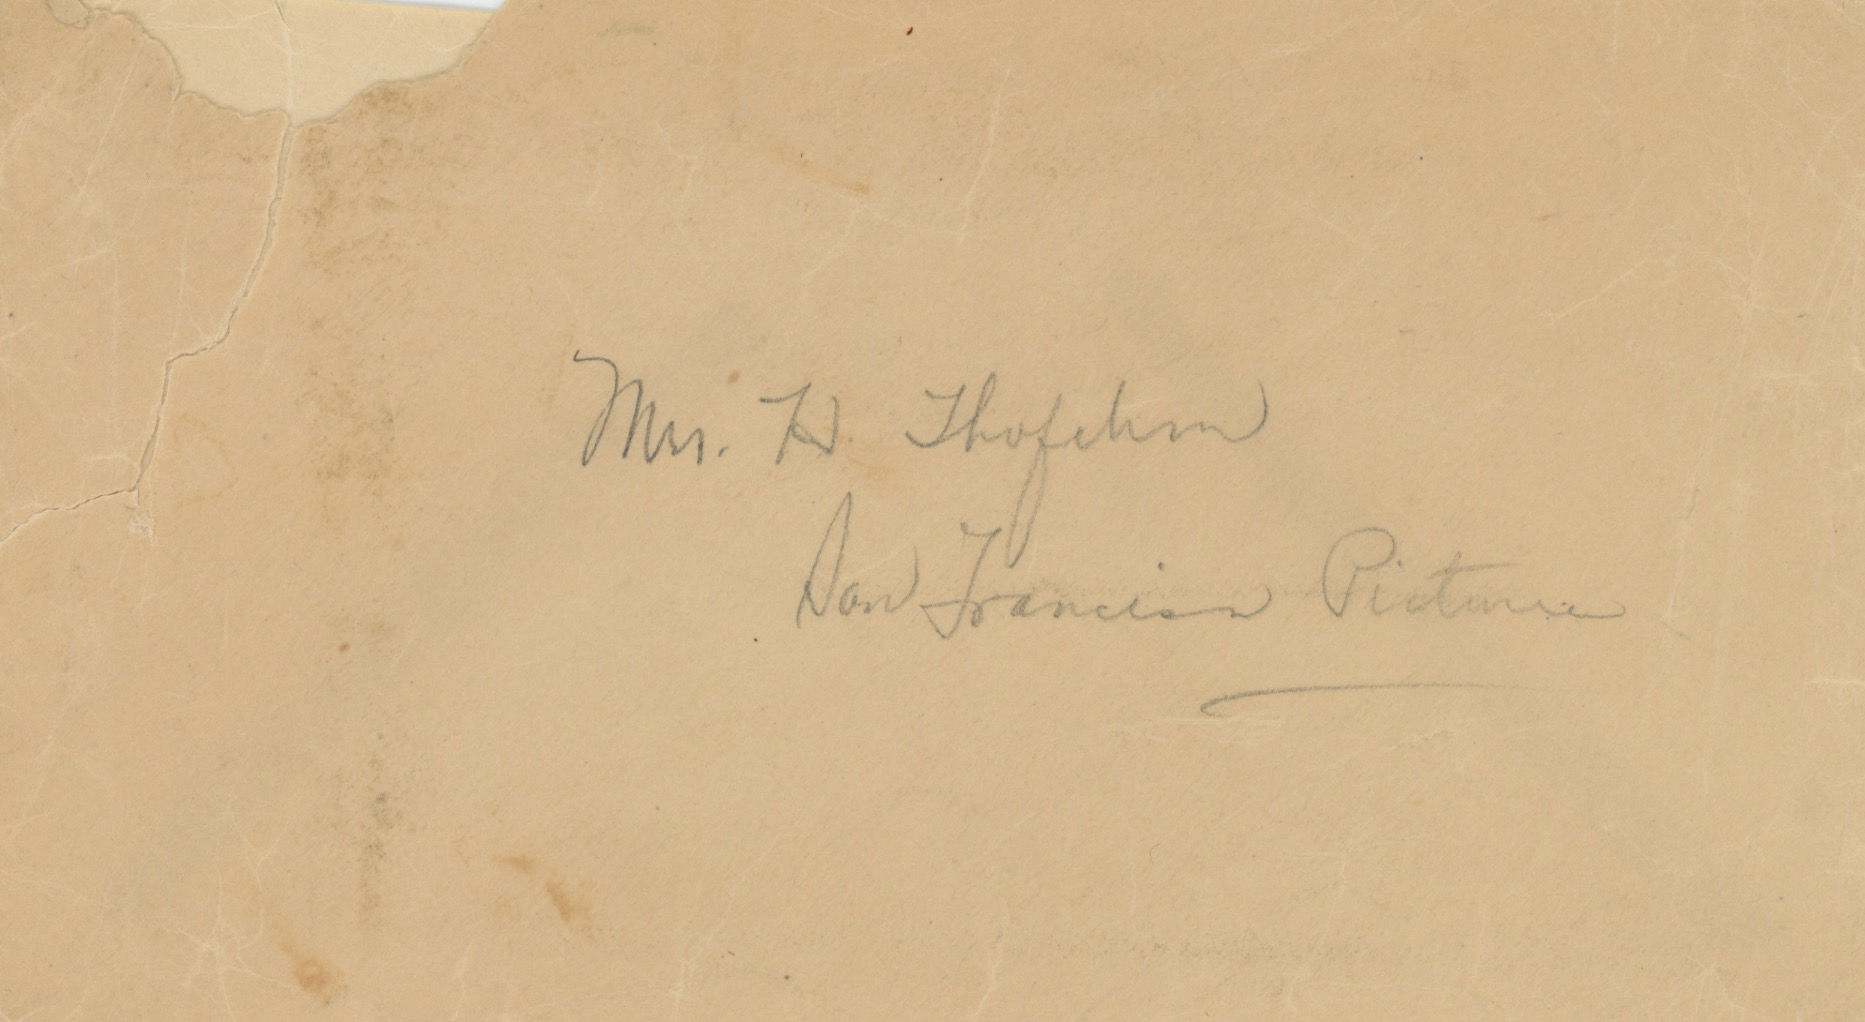 Mrs. H. Thofehrn
San Francisco Picture